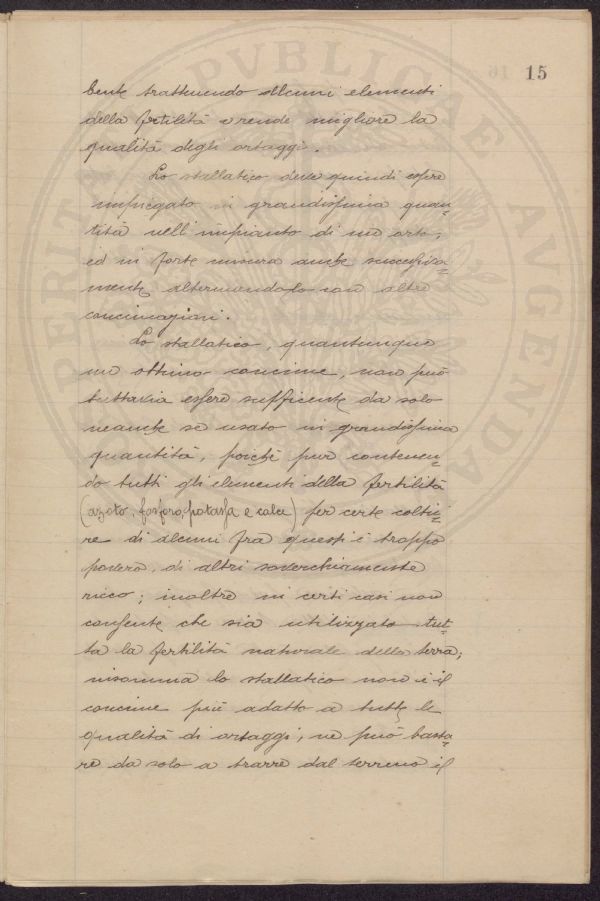 15
bente trattenendo alcuni elementi
della fertilità e rende migliore la
qualità degli ortaggi.
Lo stallatico deve quindi essere
impiegato in grandissima quan-
tità nell'impianto di un orto,
ed in forte misura anche successiva-
mente alternandolo con altre
concimazioni.
Lo stallatico, quantunque
un ottimo concime, non può
tuttavia essere sufficente da solo
neanche se usato in grandissima
quantità, poichè pur contenen-
do tutti gli elementi della fertilità
(azoto, fosforo, potassa e calce) per certe coltu-
re di alcuni fra questi è troppo
povero, di altri soverchiamente
ricco; inoltre in certi casi non
consente che sia utilizzata tut-
ta la fertilità naturale della terra;
insomma lo stallatico non è il
concime più adatto a tutte le
qualità di ortaggi, ne può basta-
re da solo a trarre dal terreno il
PERITAE PVBLICAE AVGENDAE